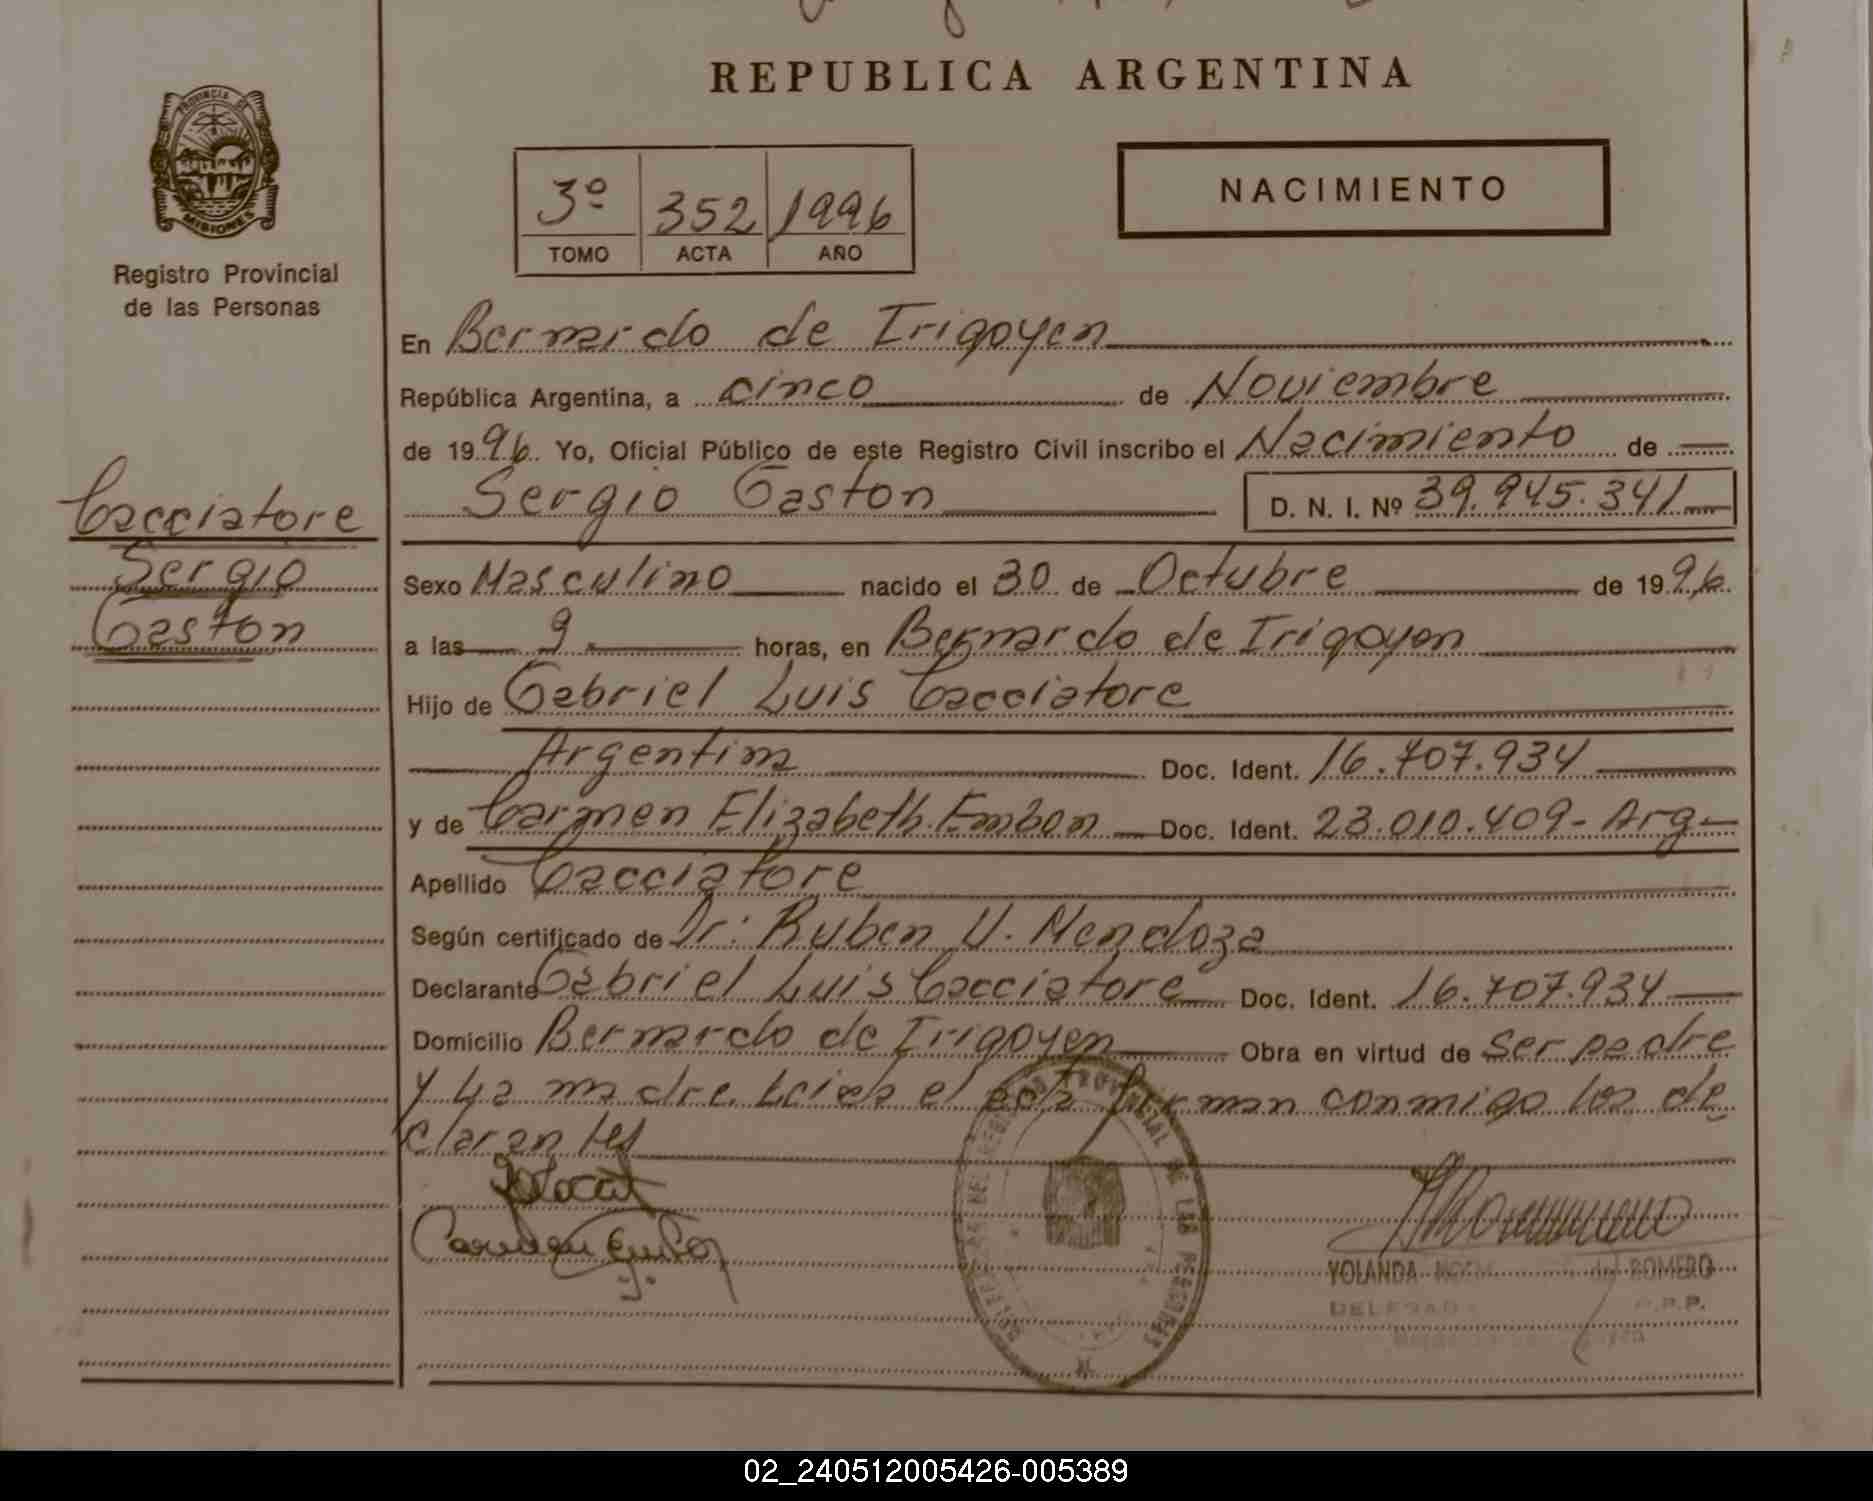 REPUBLICA ARGENTINA
PROVINCIA DE
MISIONES
Registro Provincial
de las Personas
3º 352 1996
TOMO ACTA AÑO
NACIMIENTO
En Bernardo de Irigoyen
República Argentina, a cinco de Noviembre
de 1996. Yo, Oficial Público de este Registro Civil inscribo el Nacimiento de
Sergio Gaston D. N. I. Nº 39.945.341
Cacciatore
Sergio
Gaston
Sexo Masculino nacido el 30 de Octubre de 1996
a las 9 horas, en Bernardo de Irigoyen
Hijo de Gabriel Luis Cacciatore
Argentina Doc. Ident. 16.707.934
y de Carmen Elizabeth Embon Doc. Ident. 23.010.409- Arg-
Apellido Cacciatore
Según certificado de Dr: Ruben V. Mendoza
Declarante Gabriel Luis Cacciatore Doc. Ident. 16.707.934
Domicilio Bernardo de Irigoyen Obra en virtud de ser padre
y La madre. Leida el acta firman conmigo los de
clarantes
REGISTRO PROVINCIAL DE LAS PERSONAS
YOLANDA de ROMERO
DELEGADA R.P.P.
02_240512005426-005389